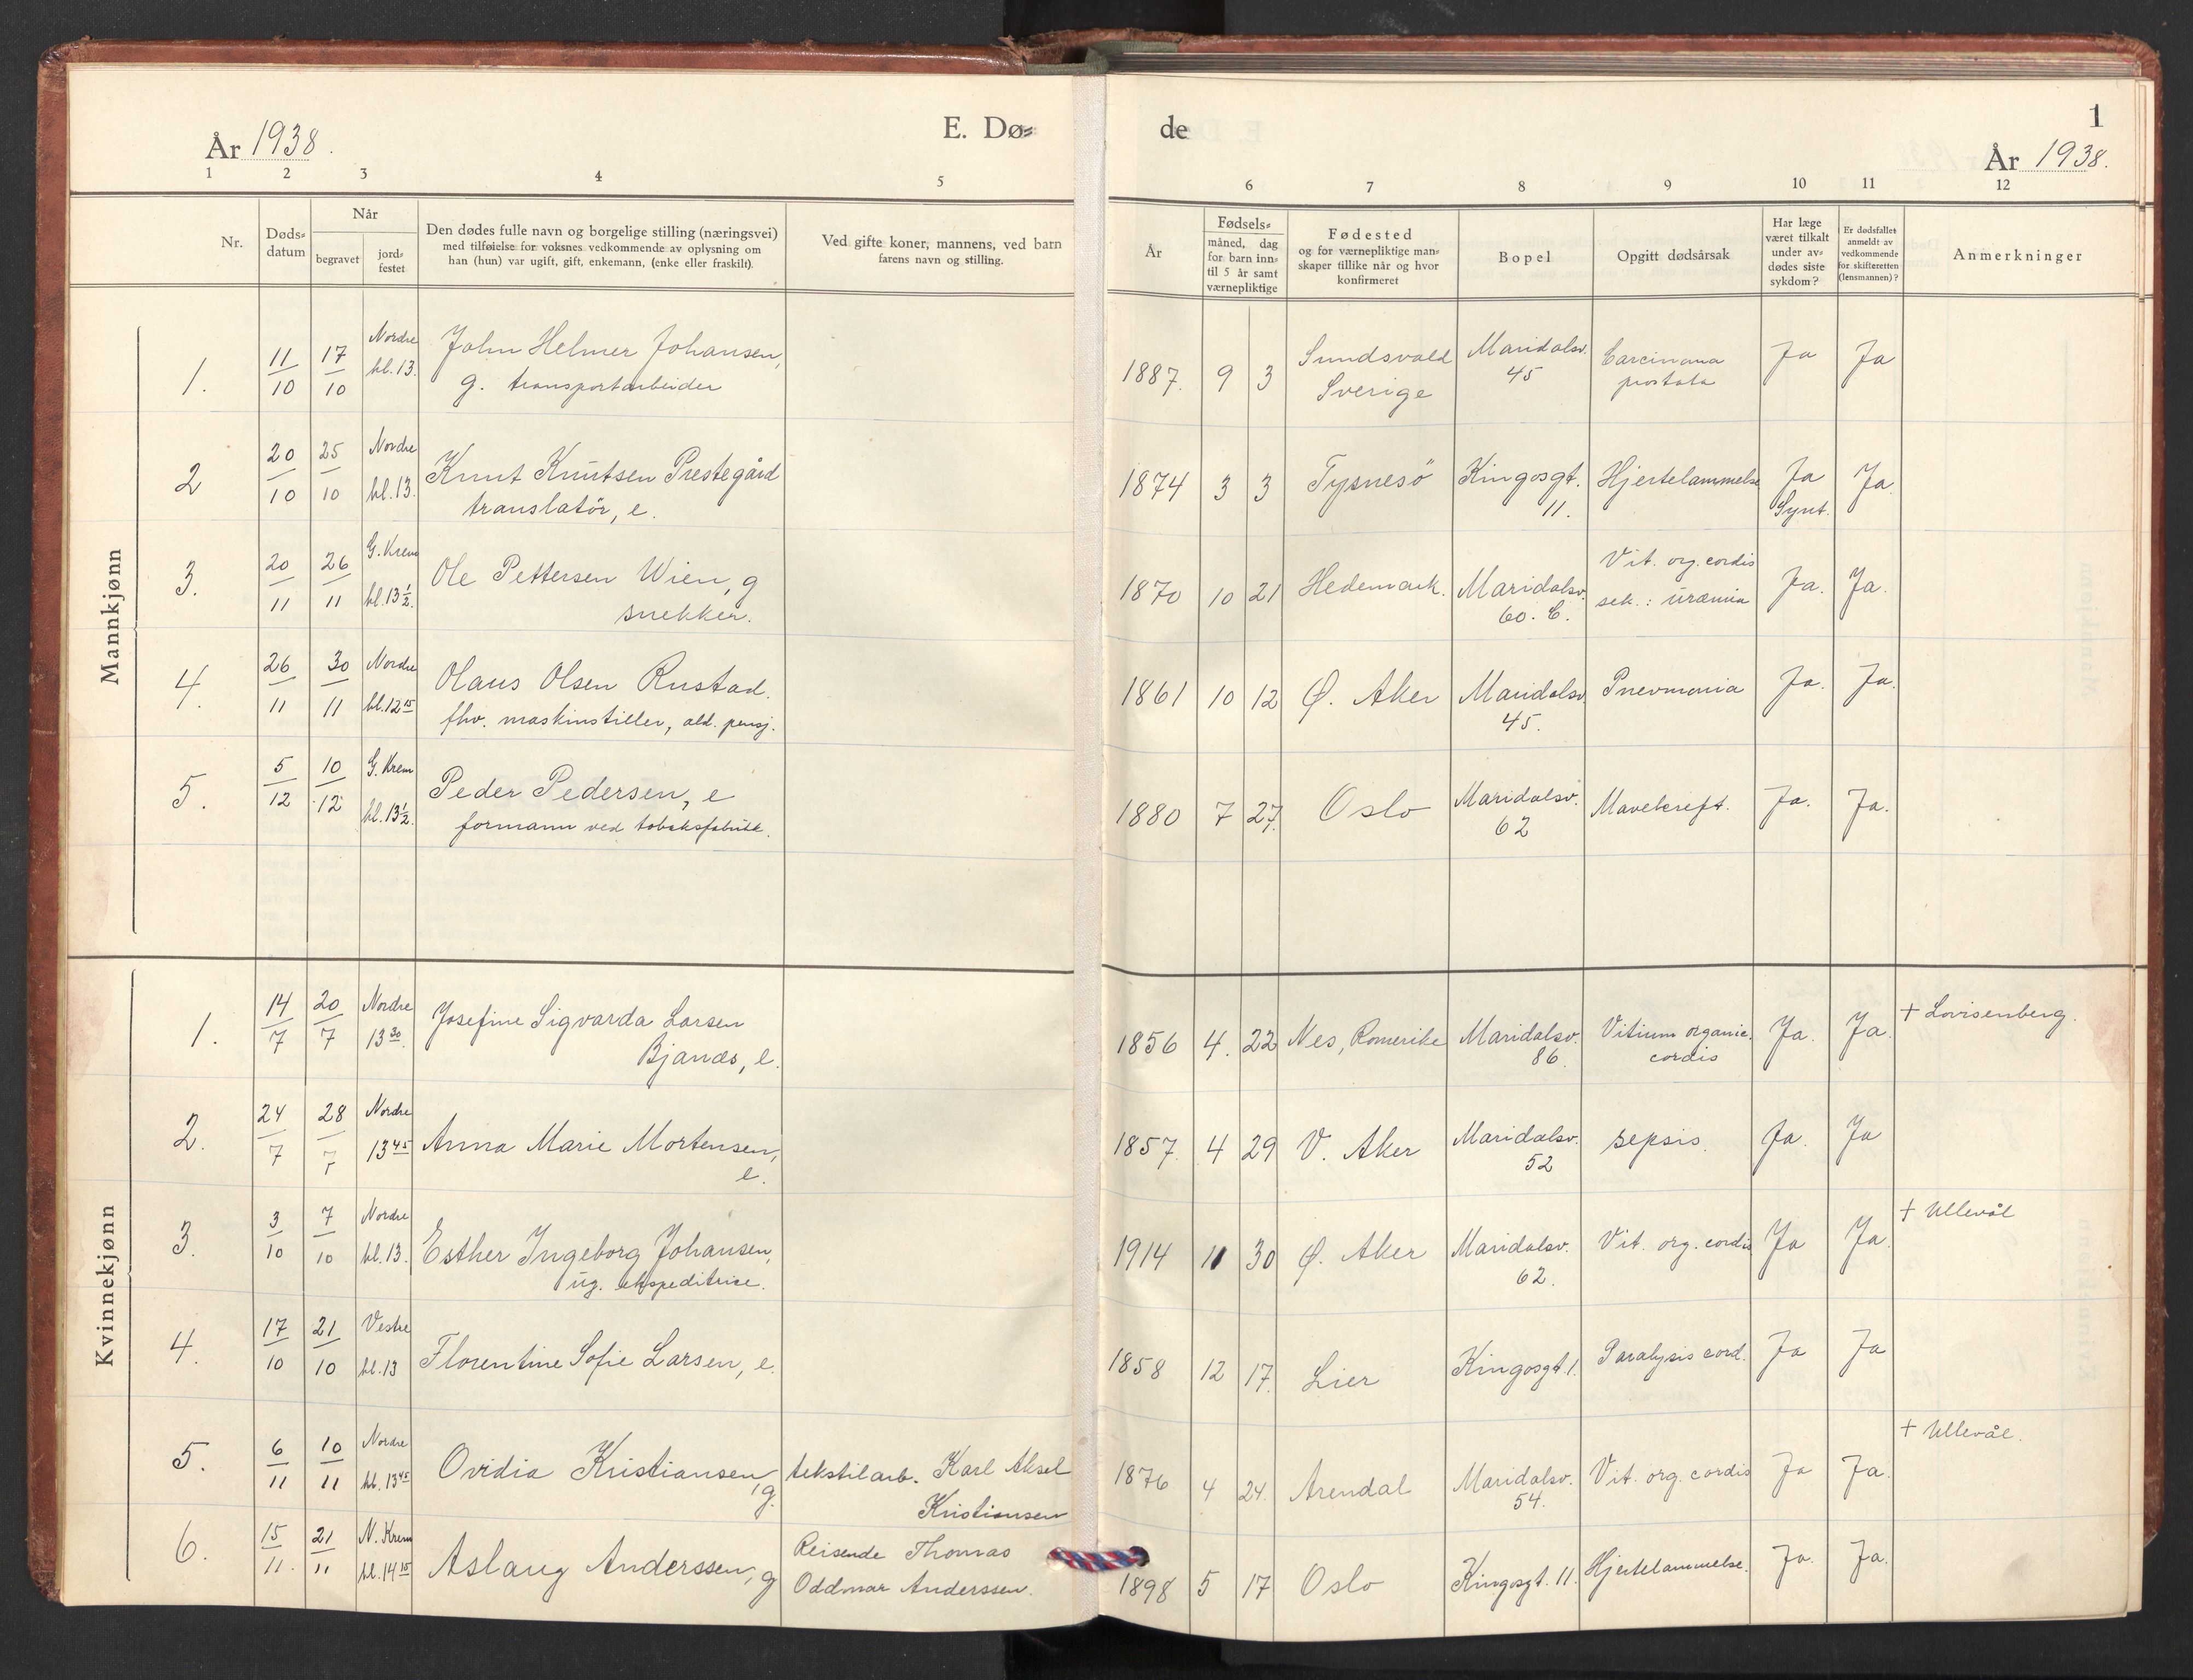 År 1938.
E. Dø=
de
1
År 1938.
1 2 3 4 5 6 7 8 9 10 11 12
Nr.
Døds=
datum
Når
begravet
jord=
festet
Den dødes fulle navn og borgelige stilling (næringsvei)
med tilføielse for voksnes vedkommende av oplysning om
han (hun) var ugift, gift, enkemann, (enke eller fraskilt).
Ved gifte koner, mannens, ved barn
farens navn og stilling.
År
Fødsels=
måned, dag
for barn inn=
til 5 år samt
værnepliktige
Fødested
og for værnepliktige man=
skaper tillike når og hvor
konfirmeret
Bopel
Opgitt dødsårsak
Har læge
været tilkalt
under av=
dødes siste
sykdom?
Er dødsfallet
anmeldt av
vedkommende
for skifteretten
(lensmannen)?
Anmerkninger
Mannkjønn
1. 11/10 17/10 Nordre kl. 13. John Helmer Johansen,
g. transportarbeider
1887. 9 3 Sundsvald Sverige Maridalsv. 45 Carcinoma prostata Ja Ja
2 20/10 25/10 Nordre kl. 13. Knut Knutsen Prestegård
translatör, e.
1874 3 3 Tysnesö Kingosgt. 11. Hjertelammelse Ja Synt. Ja.
3. 20/11 26/11 G. Krem kl. 13½. Ole Pettersen Wien, g
snekker.
1870 10 21 Hedemark. Maridalsv. 60. C. Vit. org. cordis sek.: uræmia Ja. Ja.
4. 26/11 30/11 Nordre kl. 12 15 Olaus Olsen Rustad.
fhv. maskinstiller, ald. pensj.
1861 10 12 Ø. Aker Maridalsv. 45. Pnevmonia Ja. Ja.
5. 5/12 10/12 G. Krem kl. 13½. Peder Pedersen, e
formann ved tobaksfabrikk.
1880 7 27. Oslo Maridalsv. 62 Mavekreft. Ja. Ja.
Kvinnekjønn
1. 14/7 20/7 Nordre 13 30. Josefine Sigvarda Larsen
Bjanæs, e.
1856 4. 22 Nes, Romerike Maridalsv. 86. Vitium organic. cordis Ja. Ja. + Lovisenberg.
2. 24/7 28/7 Nordre 13 45 Anna Marie Mortensen,
e.
1857. 4 29 V. Aker Maridalsv. 52 sepsis. Ja. Ja
3. 3/10 7/10 Nordre kl. 13. Esther Ingeborg Johansen,
ug. ekspeditrise.
1914 11 30 Ø. Aker Maridalsv. 62. Vit. org. cordis Ja Ja. + Ullevål
4. 17/10 21/10 Vestre kl. 13 Florentine Sofie Larsen, e.
1858 12 17. Lier Kingosgt. 1. Paralysis cord. Ja Ja
5. 6/11 10/11 Nordre kl. 13 45 Ovidia Kristiansen, g. tekstilarb. Karl Aksel
Kristiansen
1876 4 24. Arendal Maridalsv. 54. Vit. org. cordis Ja Ja. + Ullevål.
6. 15/11. 21/11 N. Krem kl. 14 15 Aslaug Anderssen, g Reisende Thomas
Oddmar Anderssen.
1898 5 17 Oslo Kingosgt. 11. Hjertelammelse. Ja. Ja.